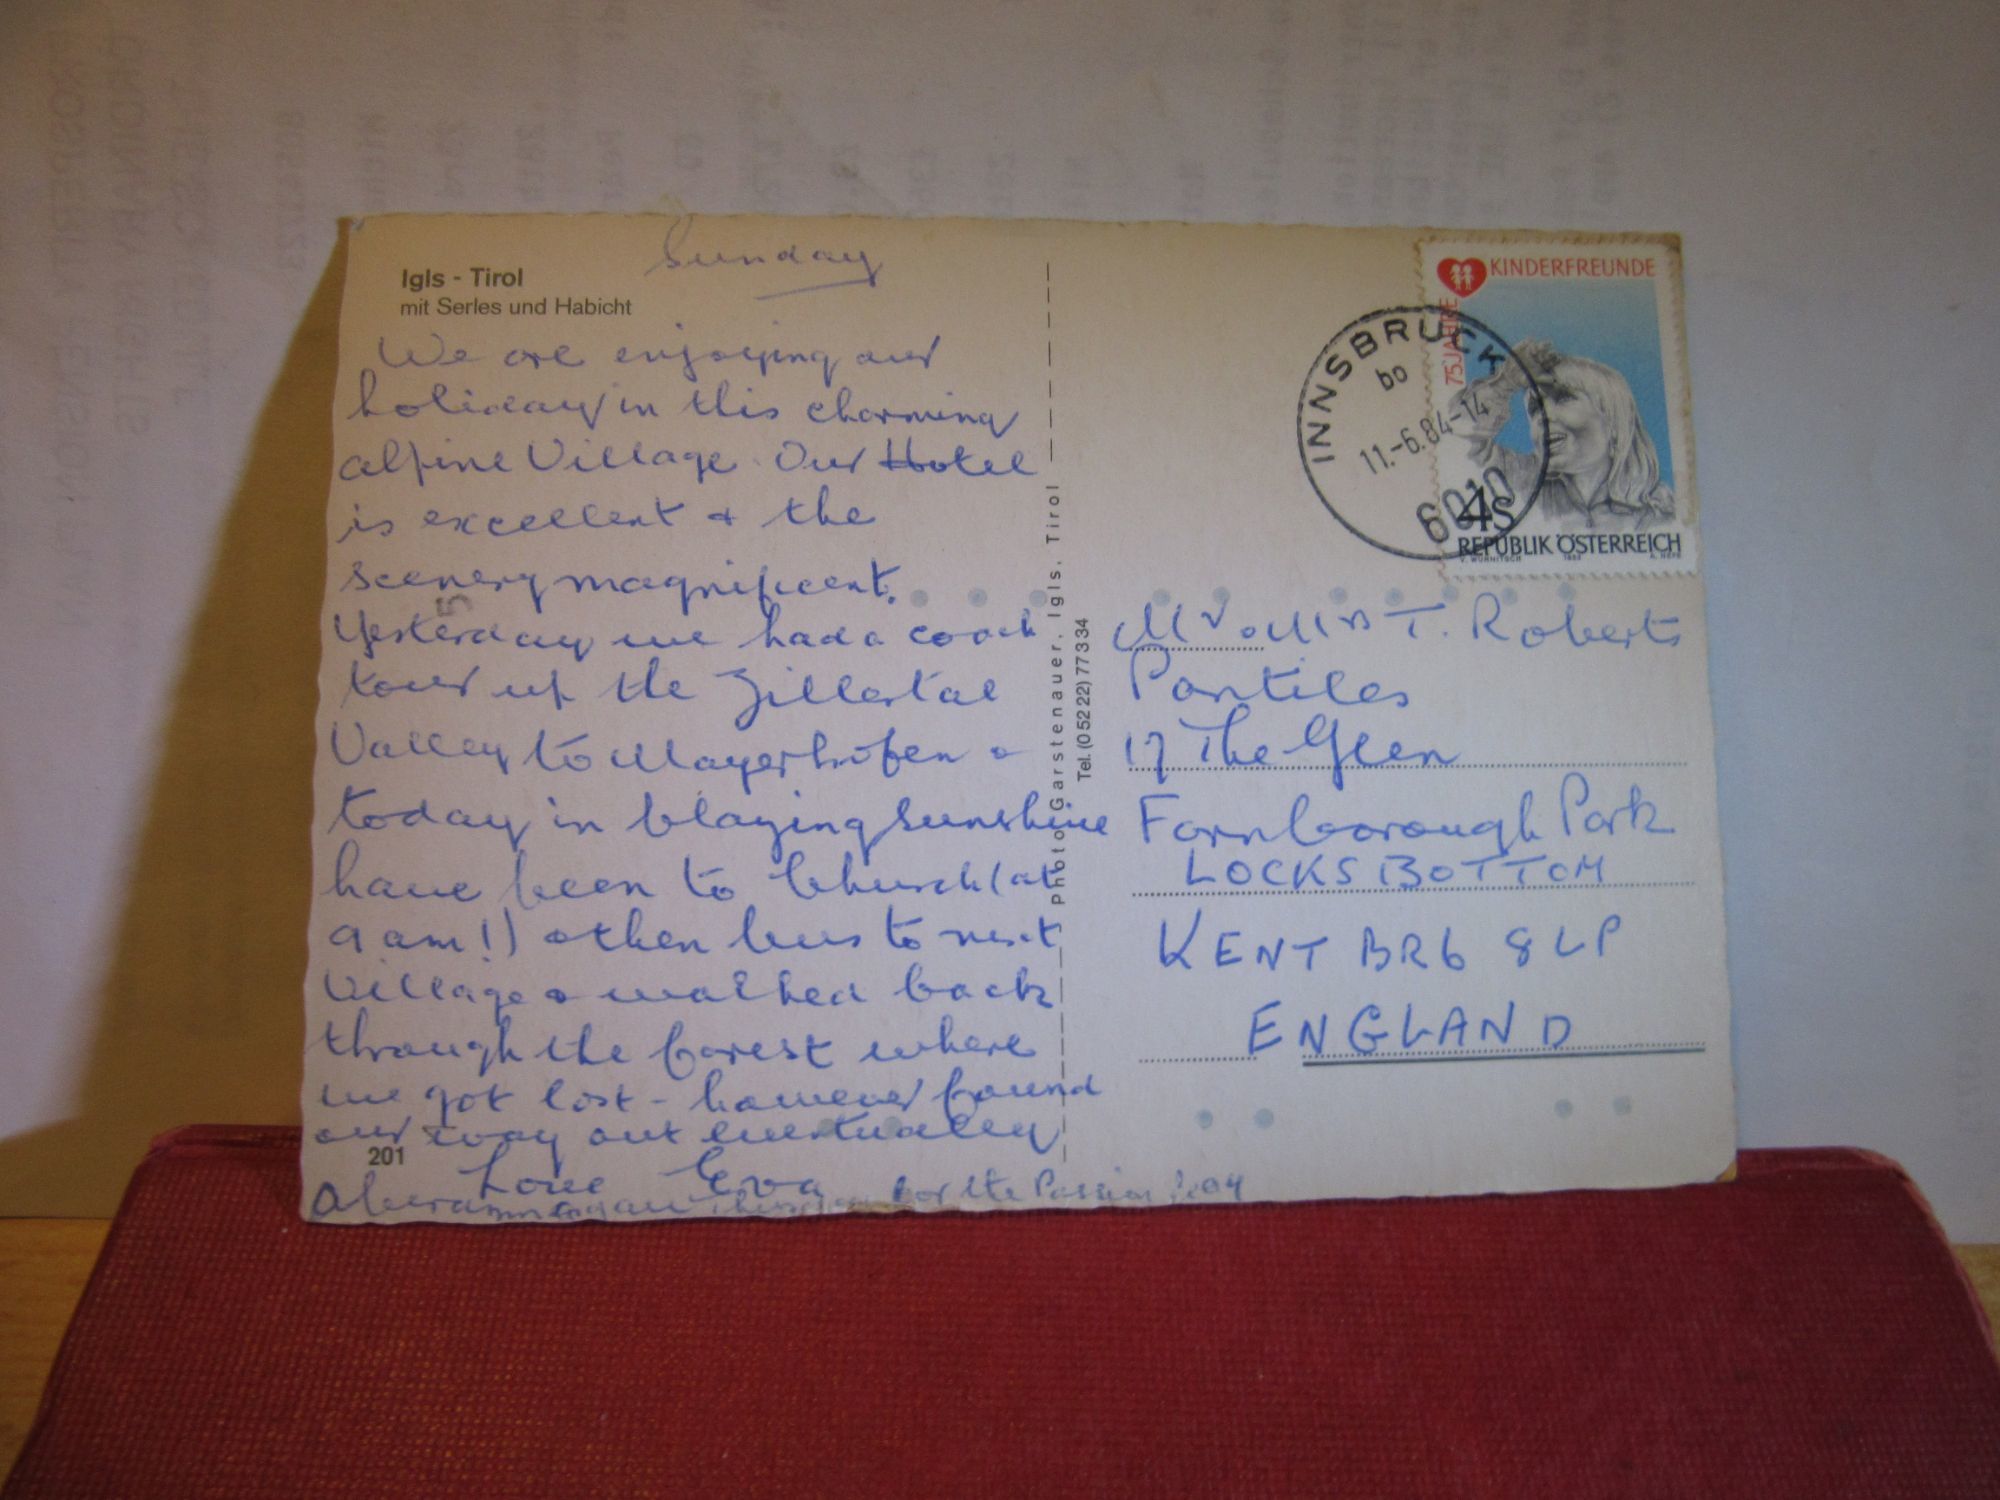 Igls - Tirol
mit Serles und Habicht
Sunday
We are enjoying our
holiday in this charming
alpine Village. Our Hotel
is excellent & the
scenery magnificent.
Yesterday we had a coach
tour up the Zillertal
Valley to Mayerhofen &
today in blazing sunshine
have been to Church (at
9 am!) & then bus to next
village & walked back
through the forest where
we got lost - however found
our way out eventually
201
Love Eva
Oberammergau Thursday for the Passion Play
Photo Garstenauer, Igls, Tirol
Tel. (0 52 22) 77 3 34
KINDERFREUNDE
75 JAHRE
4S
REPUBLIK ÖSTERREICH
INNSBRUCK
bo
11.-6.84-14
6010
Mr & Mrs T. Roberts
Pantiles
17 The Glen
Farnborough Park
LOCKSBOTTOM
KENT BR6 8LP
ENGLAND